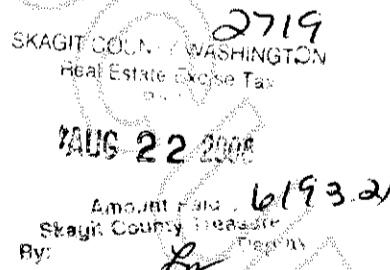 2719
SKAGIT COUNTY WASHINGTON
Real Estate Excise Tax
AUG 22 2008
Amount Paid 6193.21
Skagit County Treasurer
By: Deputy